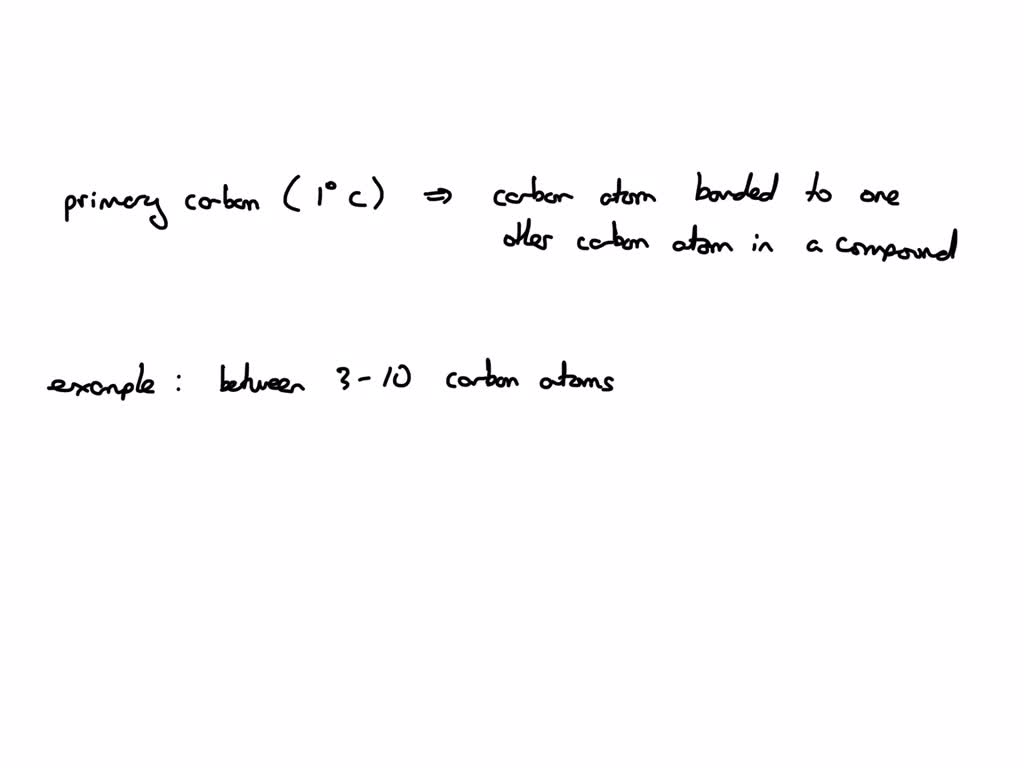 primary carbon (1° C) ⇒ carbon atom bonded to one
other carbon atom in a compound
example : between 3-10 carbon atoms